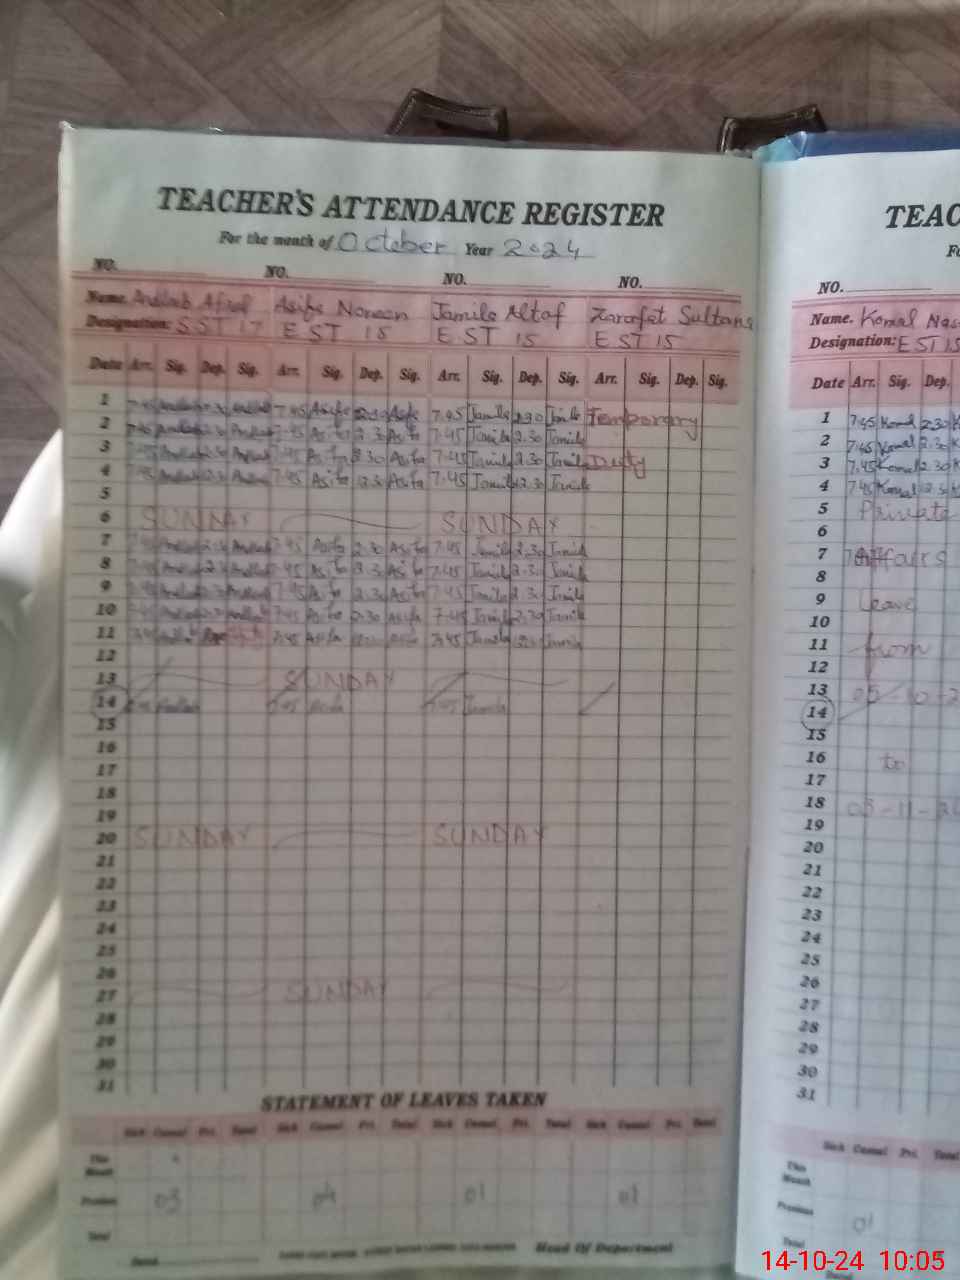 TEACHER'S ATTENDANCE REGISTER
For the month of October Year 2024
NO. NO. NO. NO.
Name. Andleeb Afzal Asifa Noreen Jamila Altaf Zarafat Sultana
Designation: SST 17 EST 15 EST 15 EST 15
Date Arr. Sig. Dep. Sig. Arr. Sig. Dep. Sig. Arr. Sig. Dep. Sig. Arr. Sig. Dep. Sig.
1 7.45 Asifa 2.30 Asifa 7.45 Jamila 2.30 Jamila Temporary
2 7.45 Asifa 2.30 Asifa 7.45 Jamila 2.30 Jamila
3 7.45 Asifa 2.30 Asifa 7.45 Jamila 2.30 Jamila Duty
4 7.45 Asifa 2.30 Asifa 7.45 Jamila 2.30 Jamila
5
6 SUNDAY SUNDAY
7 7.45 Asifa 2.30 Asifa 7.45 Jamila 2.30 Jamila
8 7.45 Asifa 2.30 Asifa 7.45 Jamila 2.30 Jamila
9 7.45 Asifa 2.30 Asifa 7.45 Jamila 2.30 Jamila
10 7.45 Asifa 2.30 Asifa 7.45 Jamila 2.30 Jamila
11 7.45 Asifa Asifa 7.45 Jamila Jamila
12
13 SUNDAY
14 7.45 Asifa 7.45 Jamila
15
16
17
18
19
20 SUNDAY SUNDAY
21
22
23
24
25
26
27 SUNDAY
28
29
30
31
STATEMENT OF LEAVES TAKEN
Sick Casual Pri. Total Sick Casual Pri. Total Sick Casual Pri. Total Sick Casual Pri. Total
This Month
Previous 03 04 01 01
Total
Head Of Department
TEAC
NO.
Name. Komal Nas
Designation: EST 15
Date Arr. Sig. Dep.
1 7.45 Komal 2.30
2 7.45 Komal 2.30
3 7.45 Komal 2.30
4 7.45 Komal 2.30
5 Private
6
7 Affairs
8
9 Leave
10
11 from
12
13 05-10-2
14
15
16 to
17
18 03-11-24
19
20
21
22
23
24
25
26
27
28
29
30
31
Sick Casual Pri. Total
This Month
Previous 01
Total
14-10-24 10:05